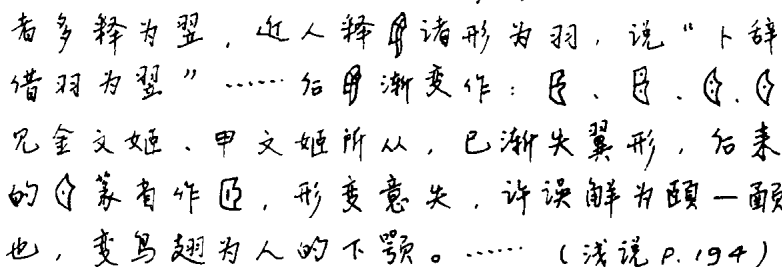 者多释为翌，近人释诸形为羽，说“卜辞
借羽为翌”……后渐变作：、、、
见金文姬、甲文姬所从，已渐失翼形，后来
的篆者作𦣞，形变意失，许误解为颐—顄
也，变鸟翅为人的下颚。……（浅说P.194）